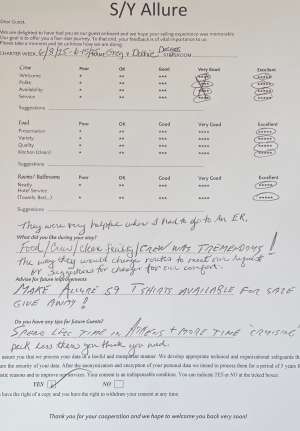 S/Y Allure
Dear Guest,
We are delighted to have had you as our guest onboard and we hope your sailing experience was memorable.
Our goal is to offer you a five-star journey. To that end, your feedback is of vital importance to us.
Please take a moment and let us know how we are doing:
CHARTER WEEK: 6/8/25 - 6-15 & Debbie STATEROOM
Crew Poor OK Good Very Good Excellent
Welcome * ** *** **** *****
Polite * ** *** **** *****
Availability * ** *** **** *****
Service * ** *** **** *****
Suggestions
Food Poor OK Good Very Good Excellent
Presentation * ** *** **** *****
Variety * ** *** **** *****
Quality * ** *** **** *****
Kitchen (clean) * ** *** **** *****
Suggestions
Rooms/ Bathrooms Poor OK Good Very Good Excellent
Neatly * ** *** **** *****
Hotel Service
(Towels, Bed...) * ** *** **** *****
Suggestions
They were very helpful when I had to go to an ER.
What did you like during your stay?
Food/Crew/clean facility/CREW WAS TREMENDOUS!
The way they would change routes to meet our request
or suggestions for change for our comfort.
Advise for future improvements
MAKE ALLURE 59 T SHIRTS AVAILABLE FOR SALE
GIVE AWAY!
Do you have any tips for future Guests?
SPEND LESS TIME IN + MORE TIME "CRUISING"
pack less than you think you need.
assure you that we process your data in a lawful and transparent manner. We develop appropriate technical and organizational safeguards th
ure the security of your data. After the anonymization and encryption of your personal data we intend to process them for a period of 5 years f
istic reasons and to improve our services. Your consent is an indispensable condition. You can indicate YES or NO at the ticked boxes:
YES NO
have the right of a copy and you have the right to withdraw your consent at any time.
Thank you for your cooperation and we hope to welcome you back very soon!